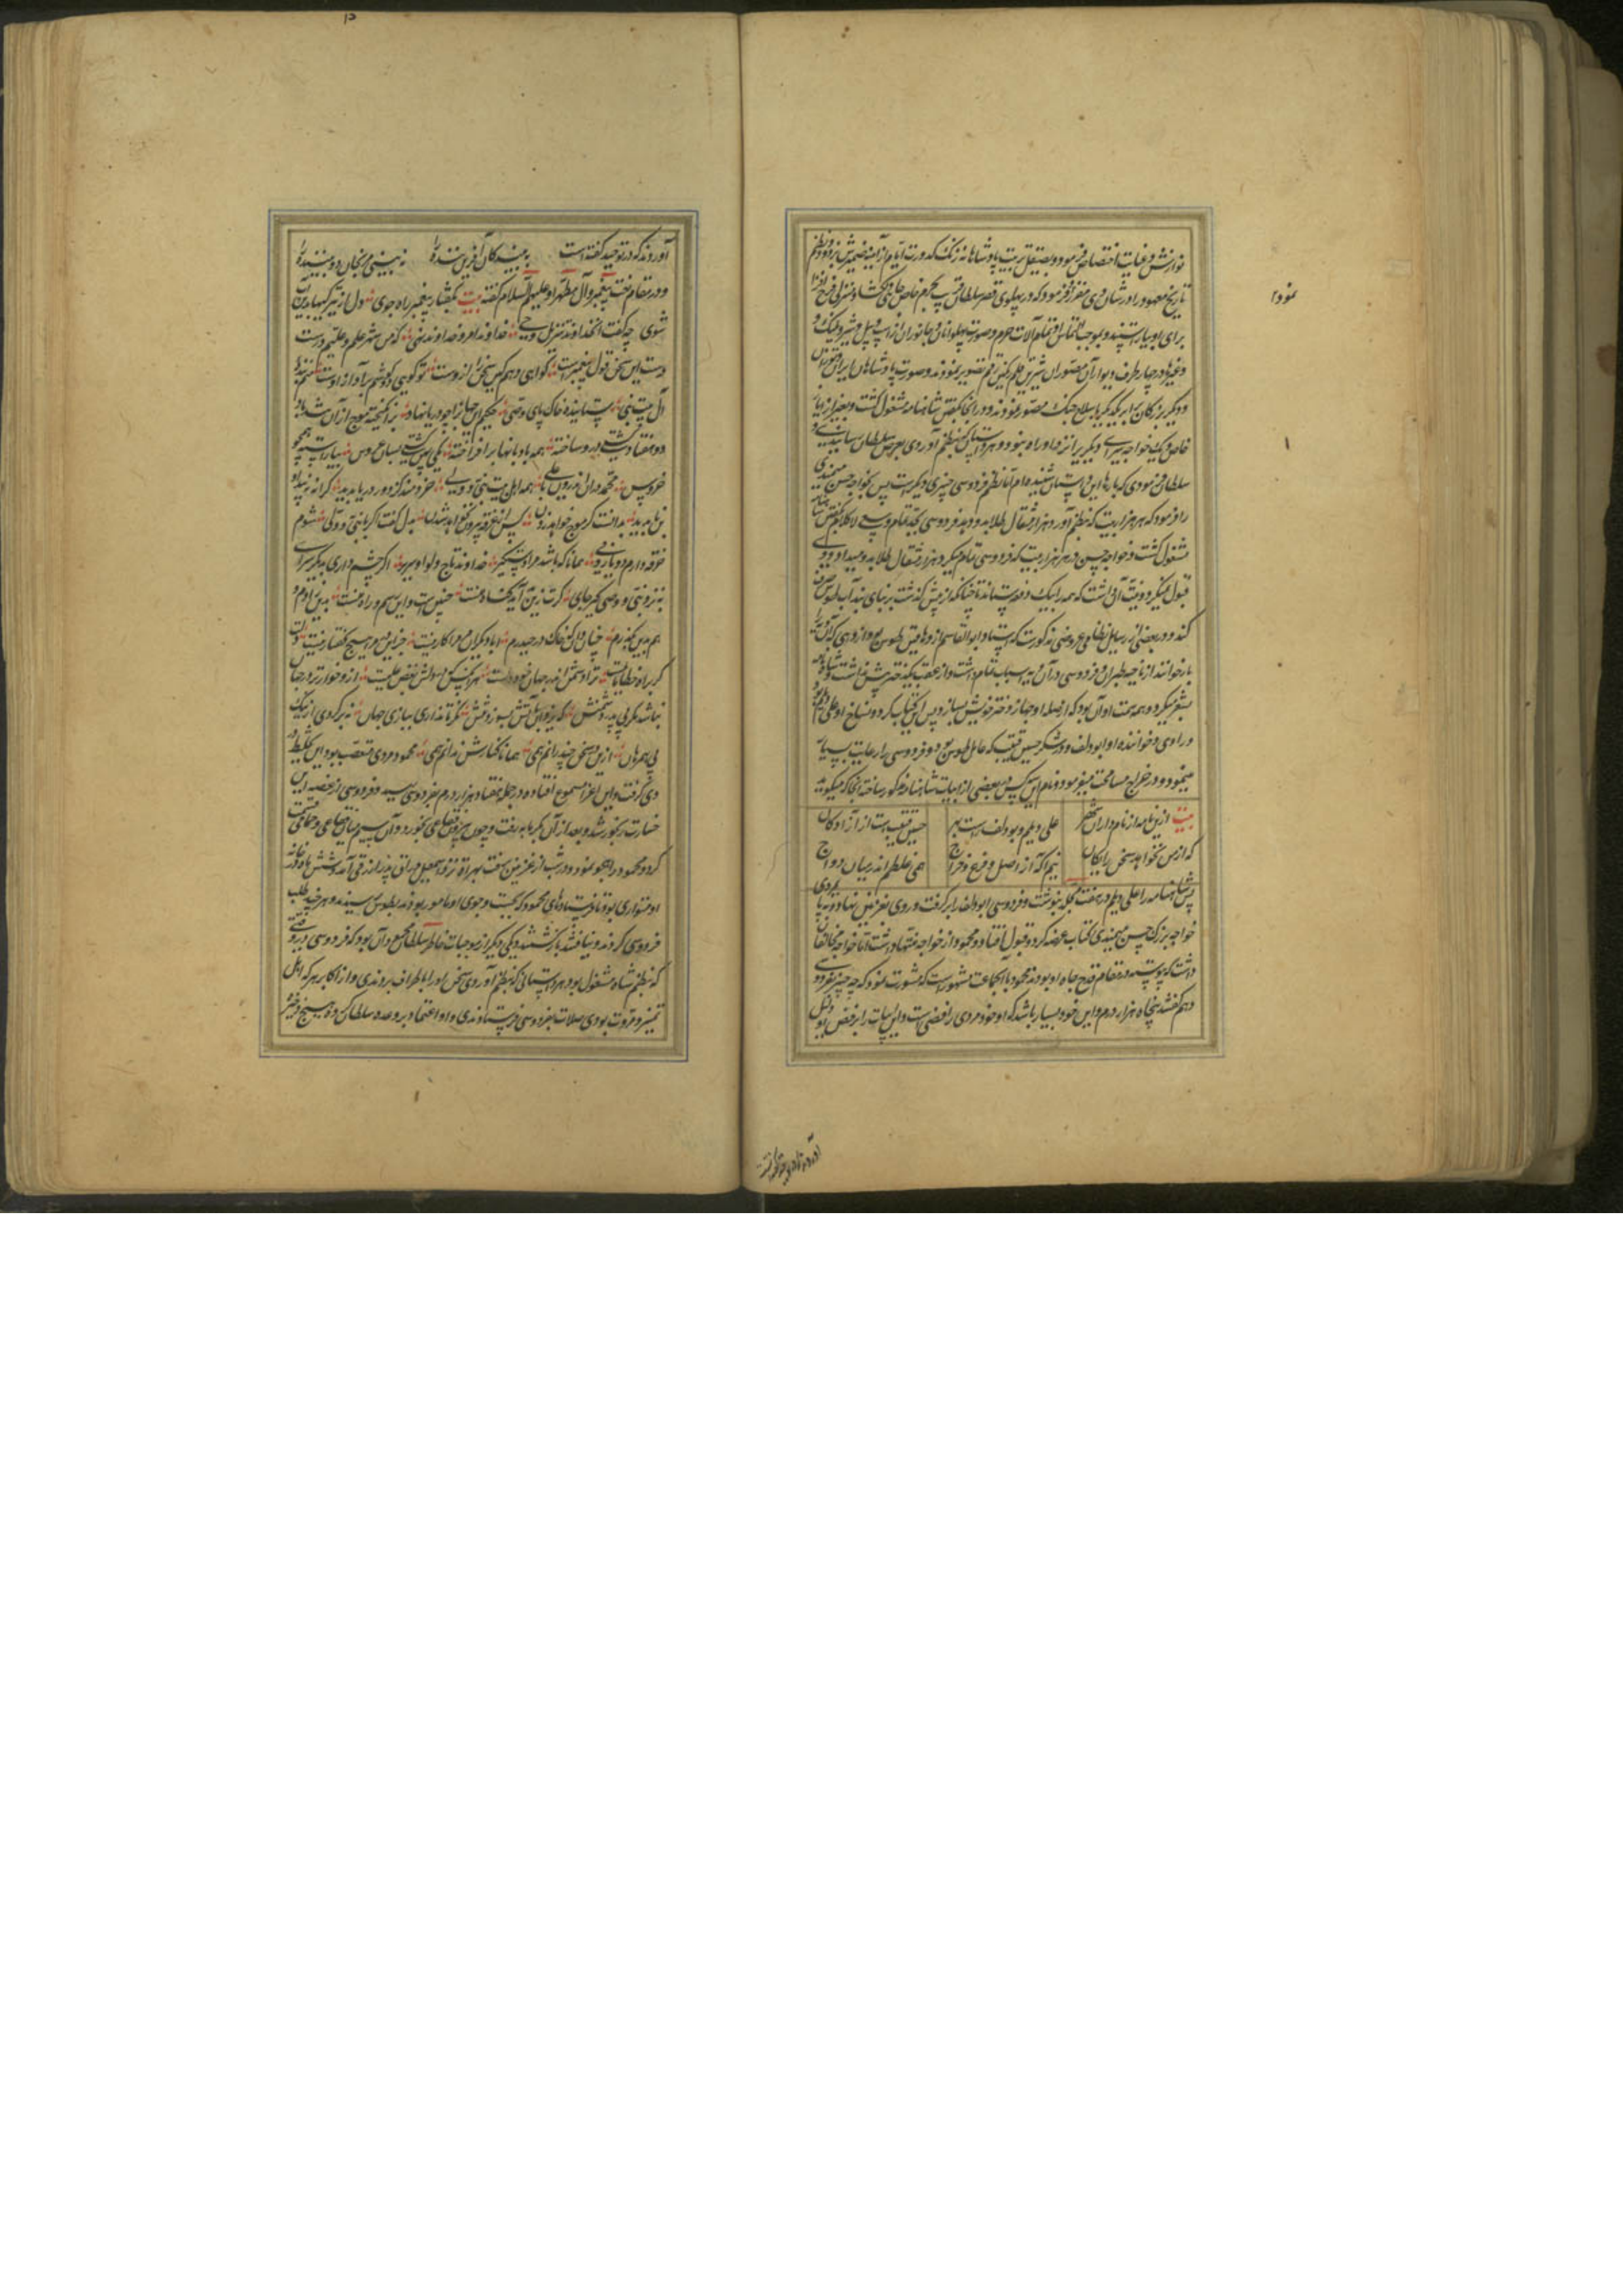 نوازش و غایت اختصاص فرمود و بصیقل تربیت پادشاهانه زنک کدورت ایام از آینه ضمیرش بزدود و نظم
تاریخ معهود را در شان وی مقرر فرمود که در پهلوی قصر سلطان قریب بحرم خاص جای دلکشا و منزلی فرح افزا
برای او بیاراستند و بموجب التماس او تمام آلات حرب و صورت پهلوانان و جانوران از اسپ و پیل و شیر و پلنک و
وغیرها در چهار طرف دیوار آن مصوران شیرین قلم رنکین رقم تصویر نمودند و صورت پادشاهان ایران و توران
و دیگر بزرکان برابر یکدیکر با سلاح جنک مصور نمودند و در آنجا بکفتن شاهنامه مشغول کشت و بغیر از ایاز
خاص و یک خواجه سرای دیکری را نزد او راه نبود و هر داستان که بنظم آوردی بعرض سلطان رسانیدندی و
سلطان فرمودی که بارها این داستان شنیده ام اما نظم فردوسی چیزی دیکر است پس بخواجه حسن میمندی
را فرمود که هر هزار بیت که بنظم آورد هزار مثقال طلا بدو دهد فردوسی بجد تمام و سعی لا کلام بکفتن شاهنامه
مشغول کشت و خواجه حسن در هر هزار بیت که فردوسی تمام میکرد هزار مثقال طلا بدو میداد و وی
قبول نمیکرد و نیت آن داشت که همه را بیک دفعه بستاند تا چنانکه از پیش کذشت بر بنای بند آب طوس صرف
کند و در بعضی از رسایل نظامی عروضی مذکورست که استاد ابو القاسم از دهاقین طوس بود از دهی که آنرا
باز خوانند از ناحیه طبران و فردوسی در آن دیه اسباب تمام داشت و از عقب یک دختر بیش نداشت و شاهنامه
بشعر میکرد و همه همت او آن بود که از صله او جهاز دختر خویش بسازد پس این کتاب کرد و نساخ او علی دیلم بود
و راوی و خواننده او ابودلف و وشکر حسین قتیب که عامل طوس بود و فردوسی را رعایت بسیار
مینمود و در خراج مسامحت میفرمود و نام این سه کس در بعضی از ابیات شاهنامه مذکور ساخته آنجا که میکوید
بیت ازین نامه از نام داران شهر علی دیلم و بودلف راست بهر حسین قتیب است از آزادکان
که از من نخواهد سخن رایکان نیم آکه از اصل و فرع و خراج همی غلطم اندر میان دواج
پس شاهنامه را علی دیلم در هفت مجلد نبوشت و فردوسی ابودلف را بر کرفت و روی بغزنین نهاد و به پایمردی
خواجه بزرک حسن میمندی کتاب عرضه کرد و قبول افتاد و محمود از خواجه منتها داشت اما خواجه مخالفان
داشت که پیوسته در مقام قدح جاه او بودند محمود با آن جماعت مشهور است که مشورت نمود که چه چیز بفردوسی
دهم کفتند پنجاه هزار درم و این خود بسیار باشد که او خود مردی رافضی است و این ابیات را بر رفض او دلیل
نمود ا
آوردند که در توحید کفته است به بینندکان آفریننده را نه بینی مرنجان دو بیننده را
و در مقام نعت پیغمبر و آل مطهر او علیهم السلام کفته بیت بکفتار پیغمبرت راه جوی دل از تیرکیها بدین آب
شوی چه کفت آن خداوند تنزیل وحی خداوند امر و خداوند نهی که من شهر علمم و علیم درست
درست این سخن قول پیغمبر است کواهی دهم کین سخن راز اوست تو کویی دو کوشم بر آواز اوست منم بنده
آل بیت نبی ستاینده خاک پای وصی حکیم این جهان را چو دریا نهاد برانکیخته موج ازان تند باد
دو هفتاد کشتی درو ساخته همه بادبانها بر افراخته یکی پهن کشتی بسان عروس بیاراسته همچو
چشم خروس محمد دران اندرون با علی همه اهل بیت نبی و ولی خردمند کز دور دریا بدید کرانه نه پیدا و
بن ناپدید بدانست کو موج خواهد زدن کس از غرق بیرون نخواهد شدن بدل کفت اکر با نبی و ولی شوم
غرقه دارم دو یار وفی همانا که باشد مرا دستکیر خداوند تاج و لوا و سریر اکر چشم داری بدیکر سرای
به نزد نبی و وصی کیر جای کرت زین بد آید کناه منست چنین است و این رسم و راه منست بدین زادم و
هم بدین بکذرم چنان دان که خاک در حیدرم ابا دیکران مر مرا کار نیست جزین در مرا هیچ کفتار نیست دلت
کر براه خطا مایلست ترا دشمن اندر جهان خود دلست هر آنکس که در دلش بغض علیست ازو خوارتر در جهان
نباشد مکر بی پدر دشمنش که یزدان بآتش بسوزد تنش نکر تا نداری ببازی جهان نه برکردی از نیک
پی همرهان ازین در سخن چند رانم همی همانا کنارش ندانم همی محمود مردی متعصب بود این تخلیط در
وی کرفت و این اغرا مسموع افتاده در جمله هفتاد هزار درم بفردوسی رسید و فردوسی از غصه این
خسارت رنجور شد و بعد از آن بکرمابه رفت و چون بیرون آمد فقاعی بخورد و آن سیم میان فقاعی و حمامی قسمت
کرد و محمود را هجو نمود و در شب از غزنین برفت بهراة نزد اسمعیل وراق پدر ازرقی آمد و شش ماه در خانه
او متواری بود تا فرستادهای محمود که بجست و جوی او مامور بودند بطوس رسیدند و هر چند طلب
فردوسی کردند و نیافتند بازکشتند و یکی دیکر از موجبات خاطر سلطان محمود آن بود که فردوسی در وقتی
که بنظم شاهنامه مشغول بود هر داستانی که بنظم آوردی سخن او را باطراف بردندی و از اکابر هر که اهل
تمیز و ثروت بودی صلات بفردوسی فرستادندی و او اعتماد بر وعده سلطان کرده هیچ ذخیره